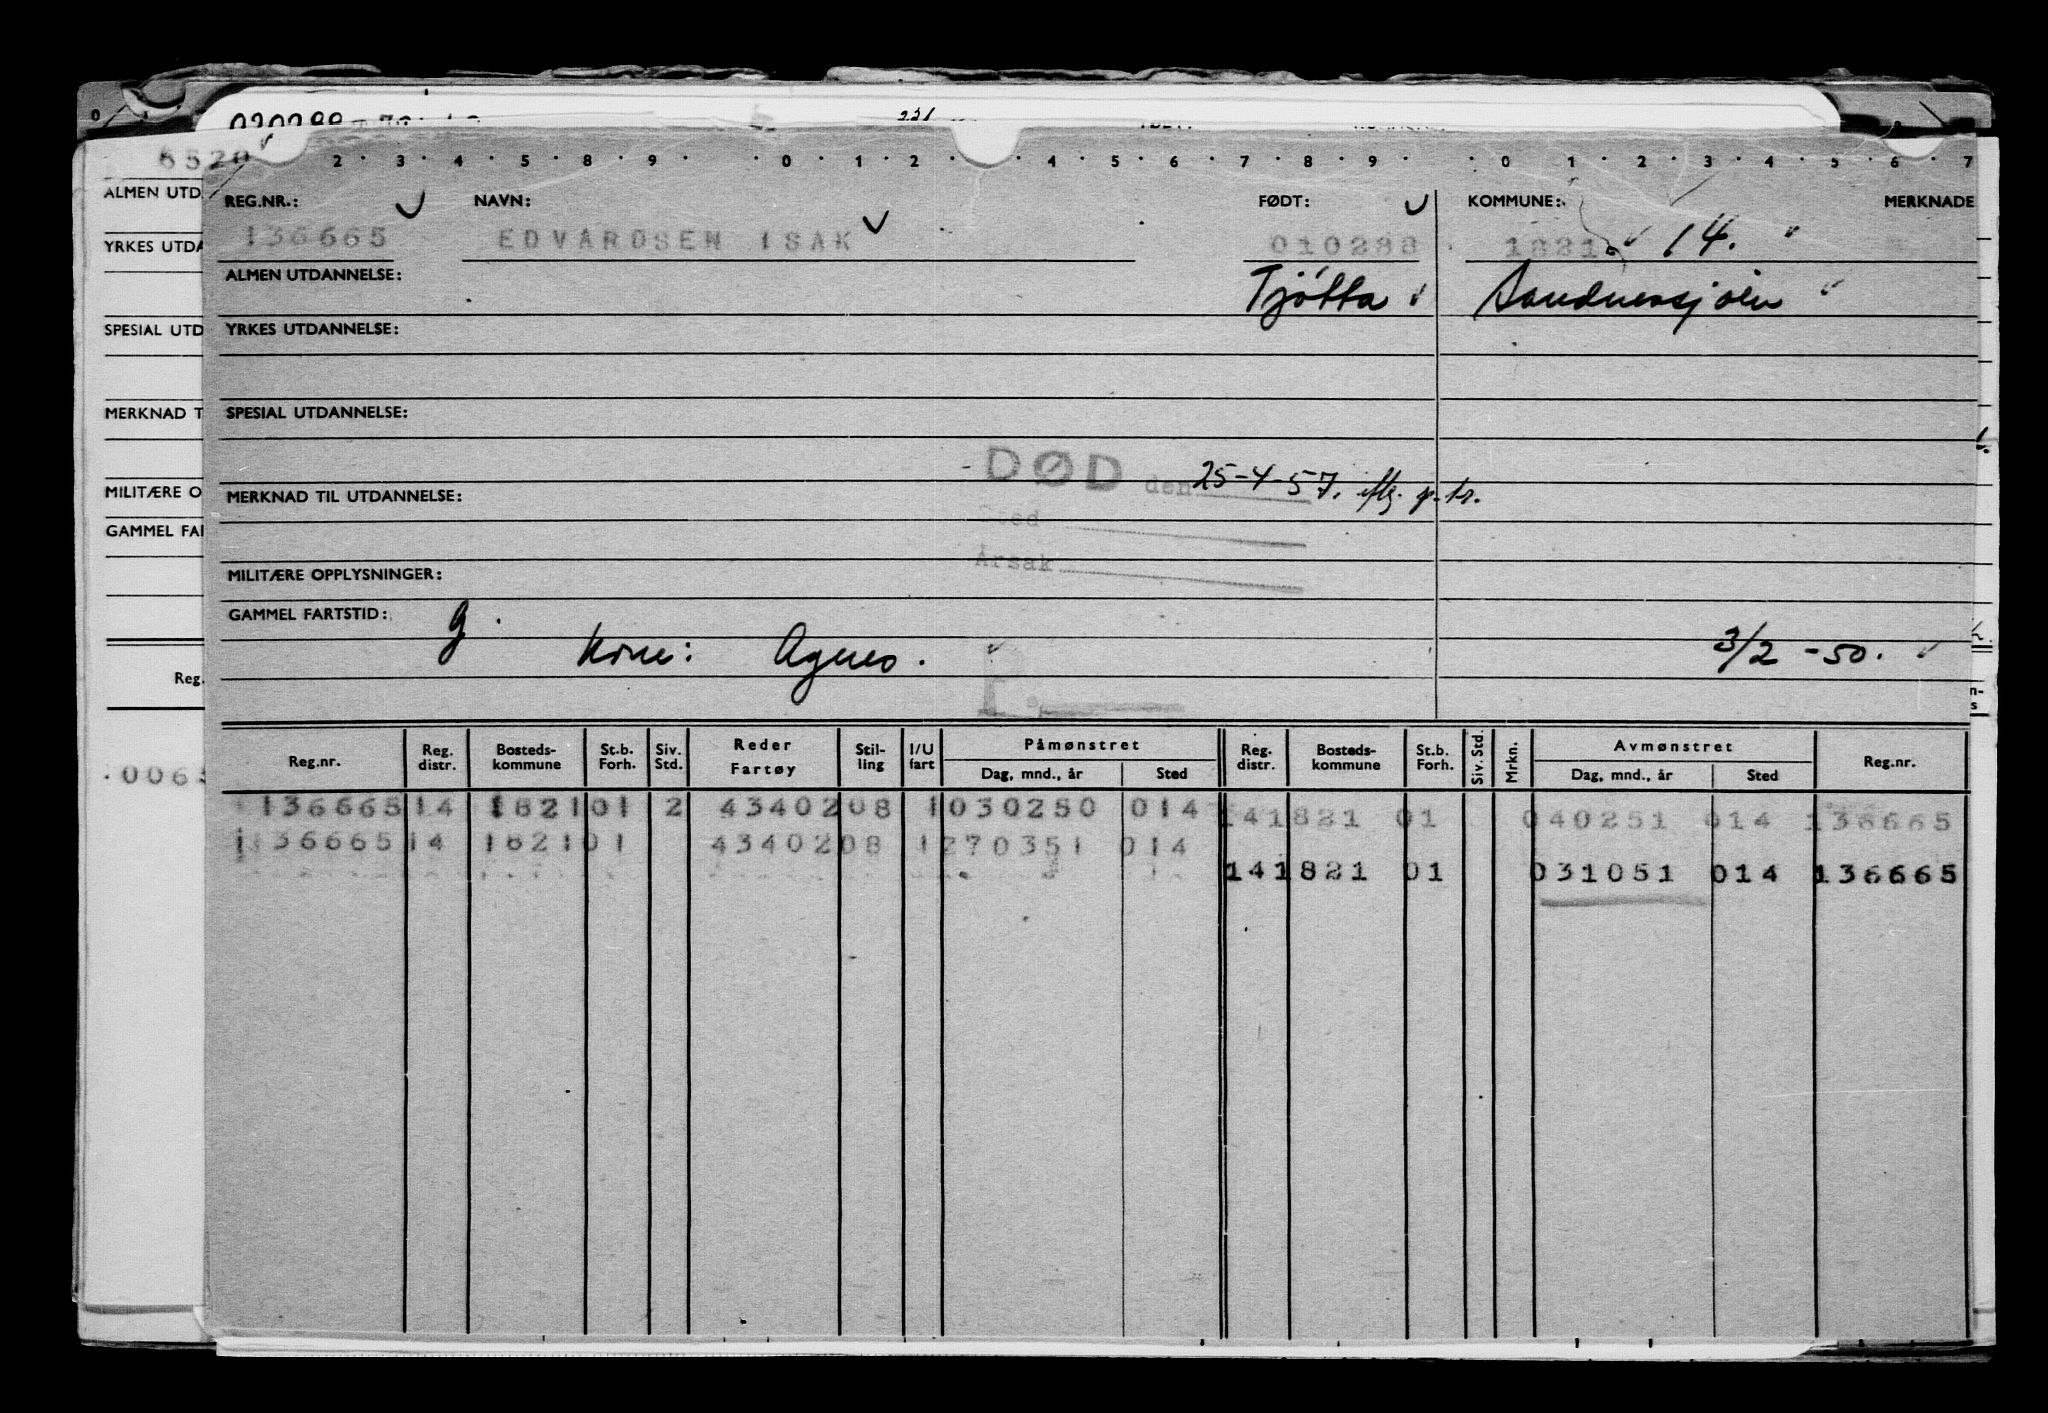 020288
231
5520
0 1 2 3 4 5 6 7 8 9 0 1 2 4 5 6 7 8 9 0 1 2 3 4 5 6 7
ALMEN UTD
YRKES UTDA
SPECIAL UTD
MERKNAD T
MILITÆRE O
GAMMEL FAR
Reg.
REG.NR.: NAVN: FØDT: KOMMUNE: MERKNADE
136665 EDVARDSEN ISAK 010288 1821 14.
ALMEN UTDANNELSE: Tjøtta Sandnessjøen
YRKES UTDANNELSE:
SPESIAL UTDANNELSE:
DØD den 25-4-57. iflg. p.tr.
MERKNAD TIL UTDANNELSE:
Sted
Årsak
MILITÆRE OPPLYSNINGER:
GAMMEL FARTSTID: g.
Kone: Agnes. 3/2 -50.
Reg.nr. Reg. distr. Bosteds-kommune St.b. Forh. Siv. Std. Reder Fartøy Stil-ling I/U fart Påmønstret Dag, mnd., år Sted Reg. distr. Bosteds-kommune St.b. Forh. Siv. Std. Mrkn. Avmønstret Dag, mnd., år Sted Reg.nr.
0065
136665 14 1821 01 2 43402 08 1 030250 014 14 1821 01 040251 014 136665
136665 14 1821 01 43402 08 1 270351 014
14 1821 01 031051 014 136665